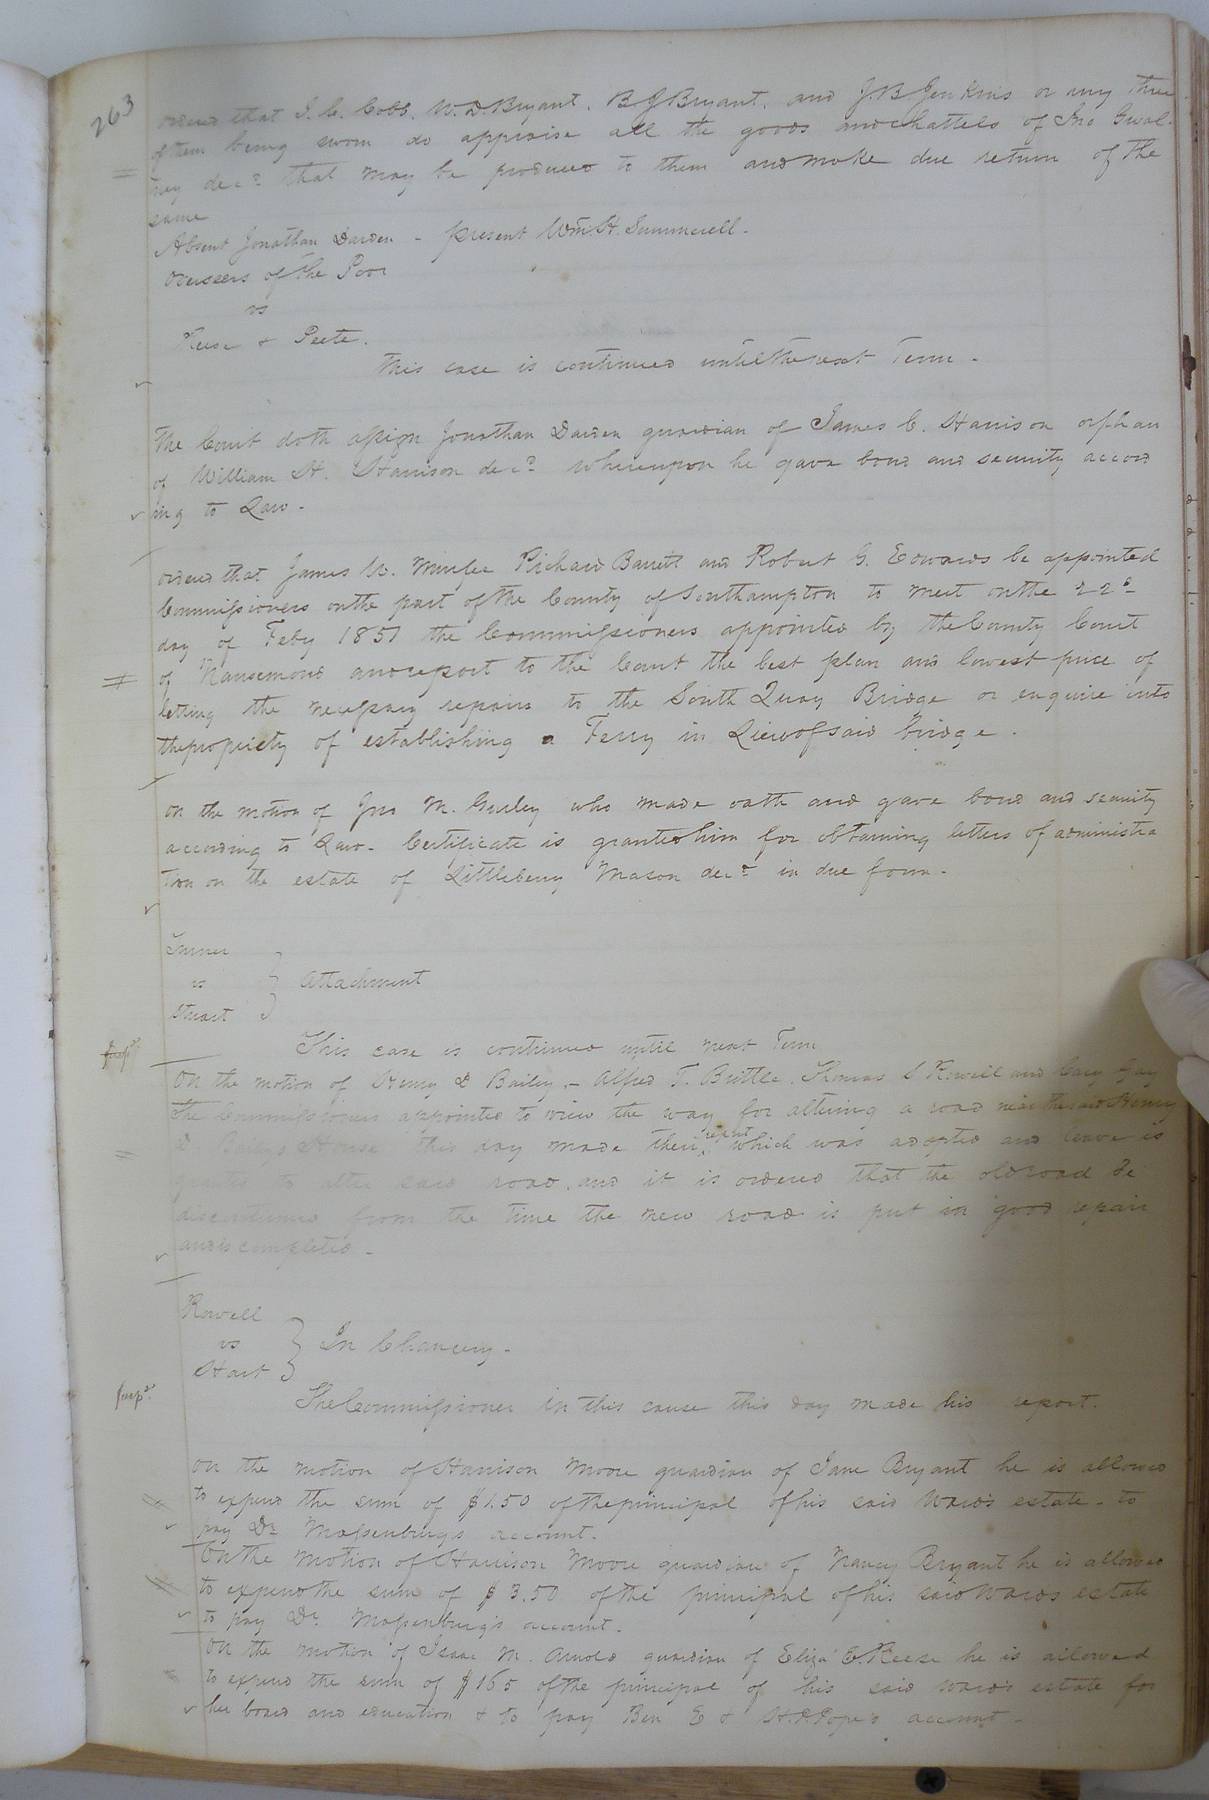 263
ordered that J. C. Cobb, W. D. Bryant, B J Bryant, and J. B Jenkins or any three
of them being sworn do appraise all the goods and chattels of Jno Gwal-
tney decd that may be produced to them and make due return of the
same
Absent Jonathan Darden - present Wm. H. Summerell -
Overseers of the Poor
vs
Reese & Peete.
This case is continued until the next Term -
The Court doth assign Jonathan Darden guardian of James C. Harrison orphan
of William H. Harrison decd whereupon he gave bond and security accord
ing to Law -
ordered that James W. Minter Richard Barrett and Robert G. Edwards be appointed
Commissioners on the part of the County of Southampton to meet on the 22d
day of Feby 1851 the Commissioners appointed by the County Court
of Nansemond and report to the Court the best plan and lowest price of
letting the necessary repairs to the South Quay Bridge or enquire into
the propriety of establishing a Ferry in Lieu of said bridge.
On the motion of Jno M. Gurley who made oath and gave bond and security
according to Law - Certificate is granted him for obtaining letters of administra
tion on the estate of Littleberry Mason decd in due form.
Turner
vs
Stuart
} Attachment
This case is continued until next Term
On the motion of Henry D Bailey - Alfred T. Brittle, Thomas S Rowell and Cary Gay
the Commissioners appointed to view the way for altering a road near the said Henry
D. Baileys House this day made their report which was adopted and leave is
granted to alter said road, and it is ordered that the old road be
discontinued from the time the new road is put in good repair
and is completed -
Rowell
vs
Hart
} In Chancery -
The Commissioner in this cause this day made his report.
On the motion of Harrison Moore guardian of Jane Bryant he is allowed
to expend the sum of $1.50 of the principal of his said Ward's estate - to
pay Dr Massenburg's account.
On the motion of Harrison Moore guardian of Nancy Bryant he is allowed
to expend the sum of $3.50 of the principal of his said Wards estate
to pay Dr. Massenburg's account.
On the motion of Isaac M. Arnold guardian of Eliza E. Reese he is allowed
to expend the sum of $165 of the principal of his said wards estate for
her board and education & to pay Ben E & H. P. Pope's account -